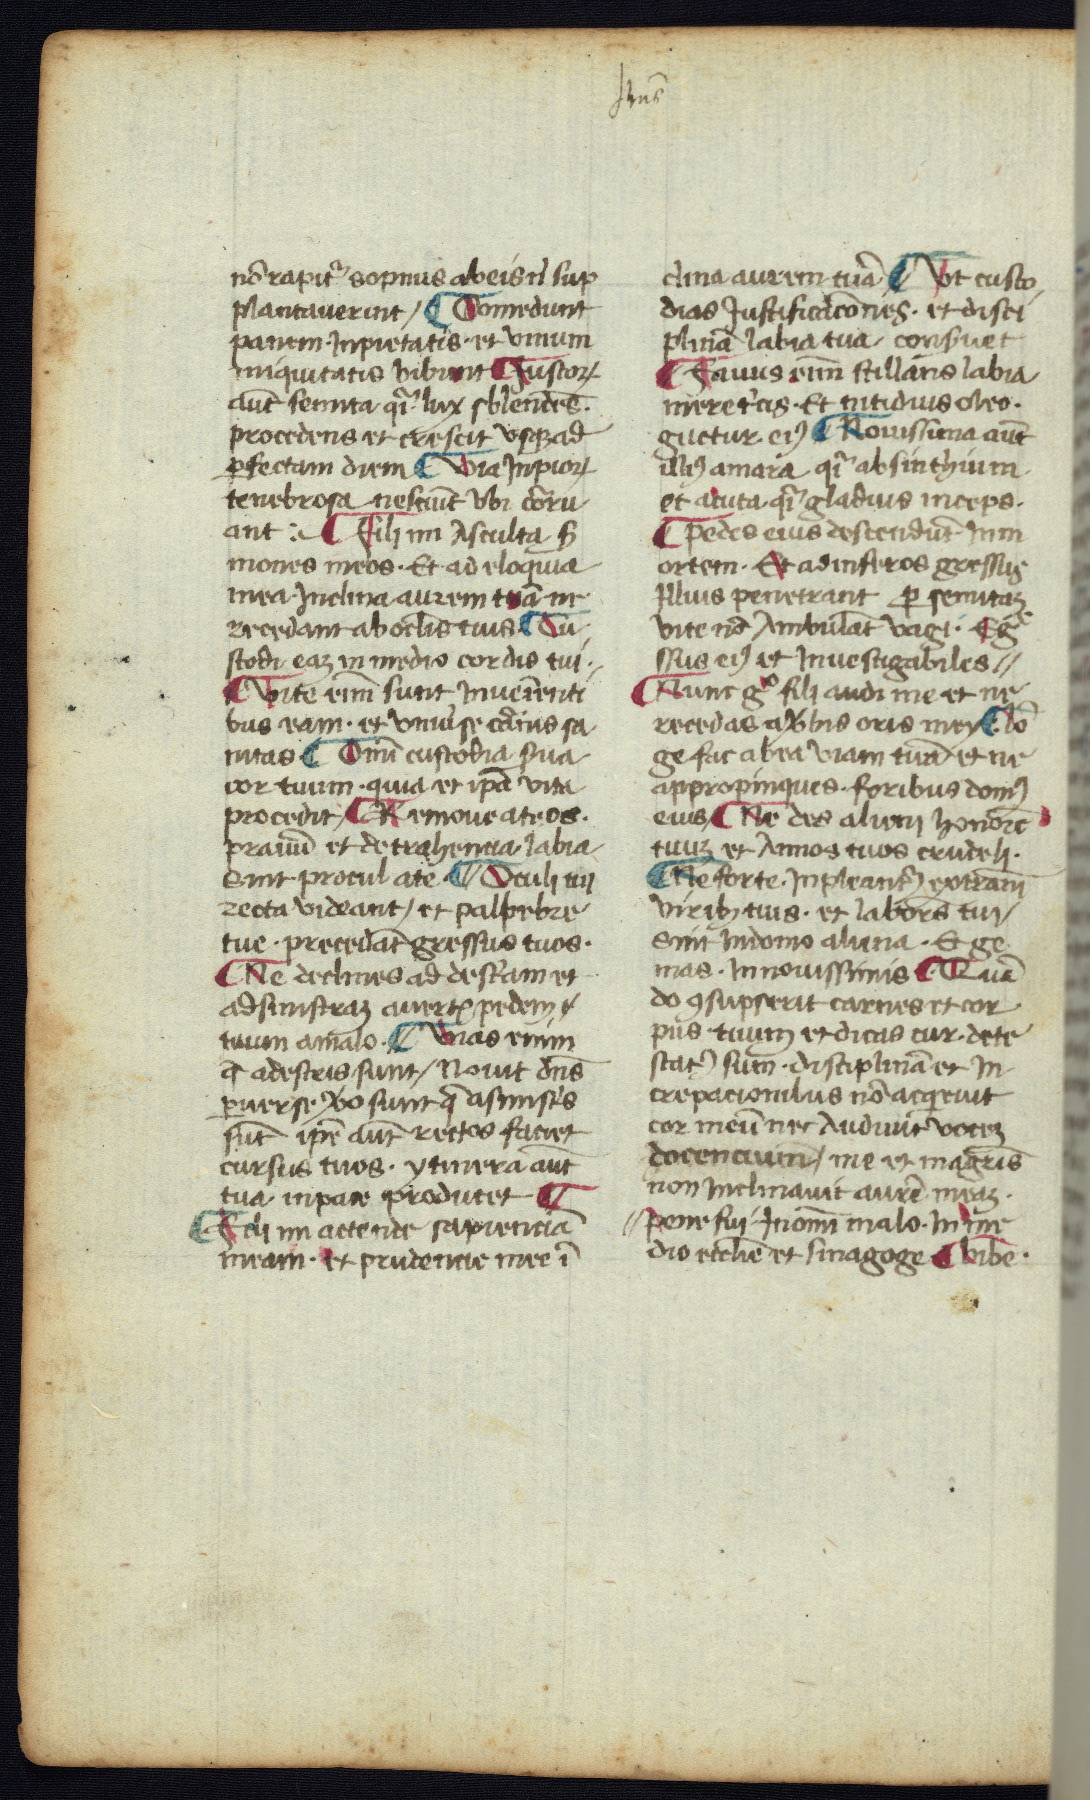 Jhus̄
nō rapit᷑ sopnus ab eis ń sup
plantaverint / ¶ Comedunt
panem · inpietatis · et vinum
iniquitatis bibunt ¶ Iustorꝝ
aut̄ semita qͣi lux sblendēs ·
procedens et crescit vsqꝫ ad
ꝑfectam diem ¶ Via Inpiorꝝ
tenebrosa nesciūt vbi cōrru
ant :~ ¶ Fili mi Asculta ẜ
mones meos · Et ad eloquia
mea · Inclina aurem tuā ne
recedant ab oclis tuis ¶ Cu
stodi eaꝫ in medio cordis tui ·
¶ Vite eīm sunt Inveīenti
bus eam · et vniu͛se cārius sa
nitas ¶ Omī custodia ẜua
cor tuum · quia et ip̄a vita
procedit / ¶ Remove a te os ·
prauū et detrahencia labia
Sint procul a te ¶ Oculi tui
recta videant / et palpebre
tue · precedāt gressus tuos ·
¶ Ne declines ad dest͛am et
ad sinistraꝫ averte pedem
tuum a malo · ¶ Vias enim
q̄ a destris sunt / Novit dn̄s
ꝑuerse ꝟo sunt q̄ a sinist͛s
sūt ip̄e aūt rectos faciet
cursus tuos · ytinera aūt
tua in pace producet ¶
¶ Fili mi attende sapienciā
meam · et prudencie mee ī
clina aurem tuā ¶ Vt custo
dias Iustificac̄ones · et disci
plinā labia tua · consuet
¶ Favus eīm stillans labia
meret͛cis · Et nitidius oleo ·
guctur · eiꝰ ¶ Novissima aūt
illiꝰ amara qͣi absinthium
et acuta · qͣi gladius inceps ·
¶ Pedes eius descendūt In m
ortem · Et ad inferos gressus
illius penetrant ꝑ semitaꝫ
vite nō Ambulāt vagi · Eg͛e
ssus eiꝰ et Investigabiles //
¶ Nunc gͦ fili audi me et ne
recedas a ꝟbis oris mey ¶ lō
ge fac ab ea viam tuā et ne
appropinques · foribus domꝰ
eius / ¶ Ne des alieni honorē
tuuꝫ et Annos tuos crudeli ·
¶ Ne forte · Inpleantꝰ extranī
viribꝫ tuis · et labors tui /
Sint In domo aliena · Et ge
mas · In novissimis ¶ Quā
do ꝯsupserit carnes et cor
pus tuum et dicas cur · dete
statꝰ sum · disciplinā et In
crepacionibus nō acq͛euit
cor meū nec Audiuit voceꝫ
docencium / me et mag͛ris
non Inclinavit aurē meaꝫ ·
// pene fui · In omī malo · In me
dio ecclīe et sinagoge ¶ bibe ·